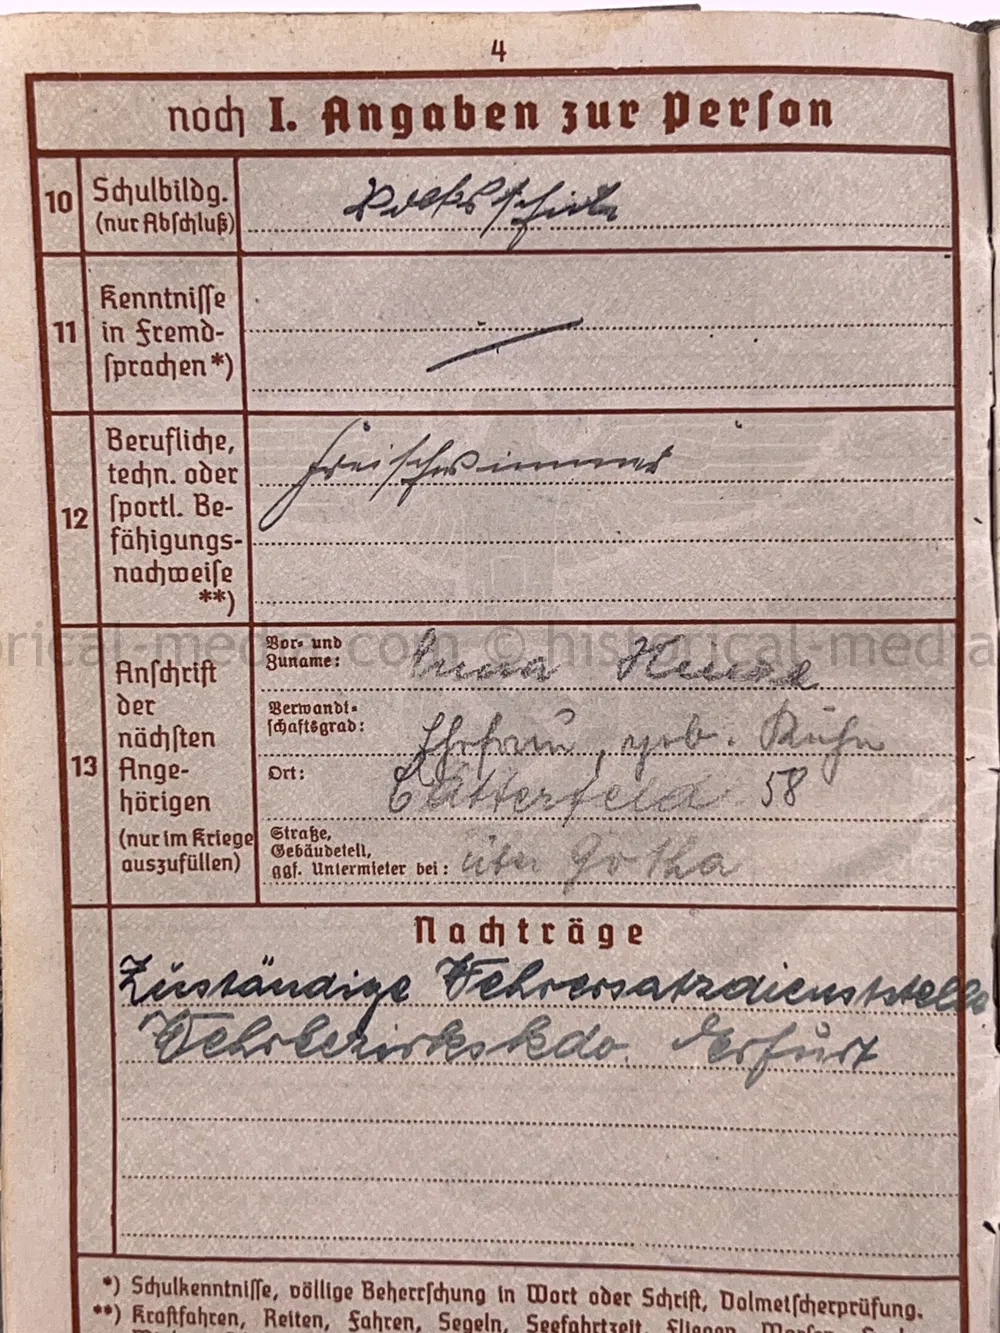 4
noch I. Angaben zur Person
10 Schulbildg. (nur Abschluß)
Volksschule
11 Kenntnisse in Fremd-
sprachen*)
12 Berufliche,
techn. oder
sportl. Be-
fähigungs-
nachweise
**)
Freischwimmer
13 Anschrift
der
nächsten
Ange-
hörigen
(nur im Kriege
auszufüllen)
Vor- und
Zuname: Anna
Verwandt-
schaftsgrad: Ehefrau, geb. Kühn
Ort: Catterfeld 58
Straße,
Gebäudeteil,
ggf. Untermieter bei: über Gotha
historical-media.com © historical-media
Nachträge
Zuständige Wehrersatzdienststelle
Wehrbezirkskdo. Erfurt
*) Schulkenntnisse, völlige Beherrschung in Wort oder Schrift, Dolmetscherprüfung.
**) Kraftfahren, Reiten, Fahren, Segeln, Seefahrtzeit, Fliegen